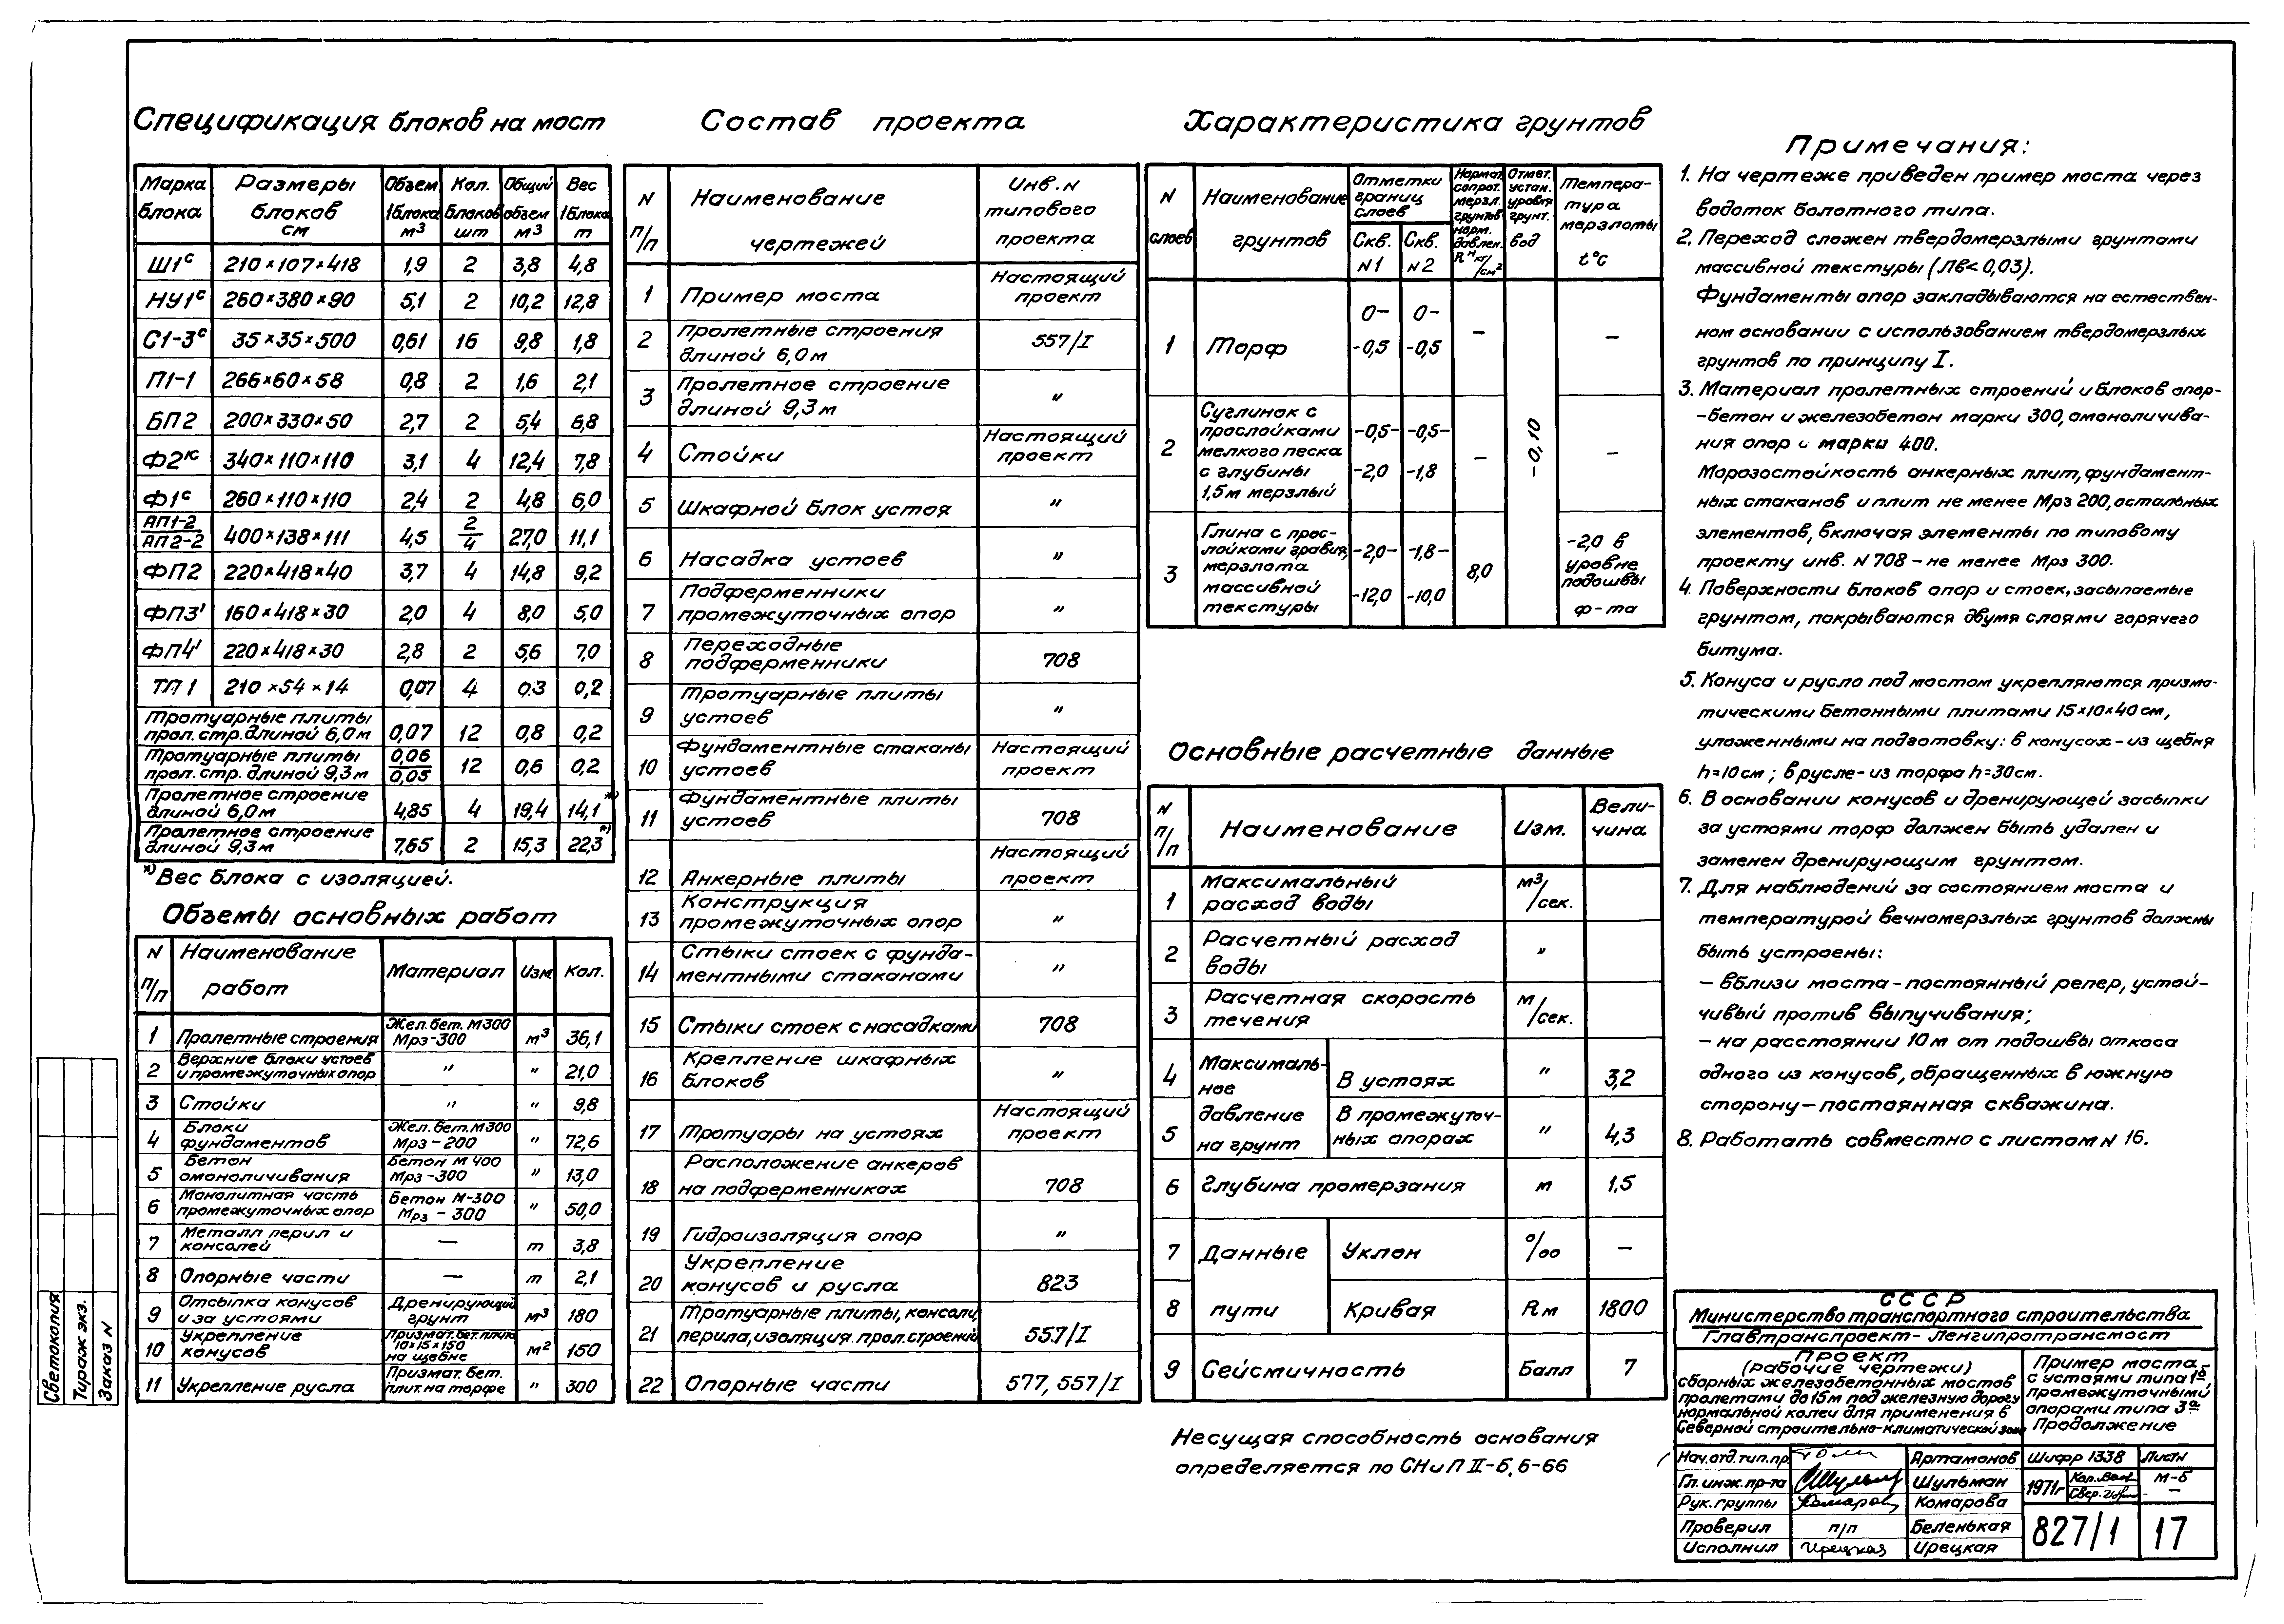 Спецификация блоков на мост
Марка блока | Размеры блоков см | Объем 1блока м³ | Кол. блоков шт | Общий объем м³ | Вес 1блока т
Ш1ᶜ | 210×107×418 | 1,9 | 2 | 3,8 | 4,8
НУ1ᶜ | 260×380×90 | 5,1 | 2 | 10,2 | 12,8
С1-3ᶜ | 35×35×500 | 0,61 | 16 | 9,8 | 1,8
П1-1 | 266×60×58 | 0,8 | 2 | 1,6 | 2,1
БП2 | 200×330×50 | 2,7 | 2 | 5,4 | 6,8
Ф2ᴷ | 340×110×110 | 3,1 | 4 | 12,4 | 7,8
Ф1ᶜ | 260×110×110 | 2,4 | 2 | 4,8 | 6,0
АП1-2/АП2-2 | 400×138×111 | 4,5 | 2/4 | 27,0 | 11,1
ФП2 | 220×418×40 | 3,7 | 4 | 14,8 | 9,2
ФП3' | 160×418×30 | 2,0 | 4 | 8,0 | 5,0
ФП4' | 220×418×30 | 2,8 | 2 | 5,6 | 7,0
ТП1 | 210×54×14 | 0,07 | 4 | 0.3 | 0,2
Тротуарные плиты прол. стр. длиной 6,0м | 0,07 | 12 | 0,8 | 0,2
Тротуарные плиты прол. стр. длиной 9,3м | 0,06/0,05 | 12 | 0,6 | 0,2
Пролетное строение длиной 6,0м | 4,85 | 4 | 19,4 | 14,1 *)
Пролетное строение длиной 9,3м | 7,65 | 2 | 15,3 | 22,3 *)
*) Вес блока с изоляцией.
Объемы основных работ
N п/п | Наименование работ | Материал | Изм | Кол.
1 | Пролетные строения | Жел.бет. М300 Мрз-300 | м³ | 36,1
2 | Верхние блоки устоев и промежуточных опор | " | " | 21,0
3 | Стойки | " | " | 9,8
4 | Блоки фундаментов | Жел.бет. М300 Мрз-200 | " | 72,6
5 | Бетон омоноличивания | Бетон М400 Мрз-300 | " | 13,0
6 | Монолитная часть промежуточных опор | Бетон М-300 Мрз - 300 | " | 50,0
7 | Металл перил и консолей | — | т | 3,8
8 | Опорные части | — | т | 2,1
9 | Отсыпка конусов и за устоями | Дренирующий грунт | м³ | 180
10 | Укрепление конусов | Призмат. бет. плиты 10×15×150 на щебне | м² | 150
11 | Укрепление русла | Призмат. бет. плит. на торфе | " | 300
Состав проекта
N п/п | Наименование чертежей | Инв. N типового проекта
1 | Пример моста | Настоящий проект
2 | Пролетные строения длиной 6,0м | 557/I
3 | Пролетное строение длиной 9,3м | "
4 | Стойки | Настоящий проект
5 | Шкафной блок устоя | "
6 | Насадка устоев | "
7 | Подферменники промежуточных опор | "
8 | Переходные подферменники | 708
9 | Тротуарные плиты устоев | "
10 | Фундаментные стаканы устоев | Настоящий проект
11 | Фундаментные плиты устоев | 708
12 | Анкерные плиты | Настоящий проект
13 | Конструкция промежуточных опор | "
14 | Стыки стоек с фунда-ментными стаканами | "
15 | Стыки стоек с насадками | 708
16 | Крепление шкафных блоков | "
17 | Тротуары на устоях | Настоящий проект
18 | Расположение анкеров на подферменниках | 708
19 | Гидроизоляция опор | "
20 | Укрепление конусов и русла | 823
21 | Тротуарные плиты, консоли, перила, изоляция прол. строений | 557/I
22 | Опорные части | 577, 557/I
Характеристика грунтов
N слоев | Наименование грунтов | Отметки границ слоев Скв. N1 | Скв. N2 | Нормат. сопрот. мерзл. грунтов норм. давлен. Rᴴ кг/см² | Отмет. устан. уровня грунт. вод | Темпера-тура мерзлоты t°C
1 | Торф | 0- -0,5 | 0- -0,5 | — | -0,10 | —
2 | Суглинок с прослойками мелкого песка с глубины 1,5м мерзлый | -0,5- -2,0 | -0,5- -1,8 | — | —
3 | Глина с прос-лойками гравия, мерзлота массивной текстуры | -2,0- -12,0 | -1,8- -10,0 | 8,0 | -2,0 в уровне подошвы ф-та
Основные расчетные данные
N п/п | Наименование | Изм. | Вели-чина
1 | Максимальный расход воды | м³/сек.
2 | Расчетный расход воды | "
3 | Расчетная скорость течения | м/сек.
4 | Максималь-ное давление на грунт | В устоях | " | 3,2
5 | В промежуточ-ных опорах | " | 4,3
6 | Глубина промерзания | м | 1,5
7 | Данные пути | Уклон | ‰ | —
8 | Кривая | Rм | 1800
9 | Сейсмичность | Балл | 7
Несущая способность основания
определяется по СНиП II-б, 6-66
Примечания:
1. На чертеже приведен пример моста через
водоток болотного типа.
2. Переход сложен твердомерзлыми грунтами
массивной текстуры (Лв<0,03).
Фундаменты опор закладываются на естествен-
ном основании с использованием твердомерзлых
грунтов по принципу I.
3. Материал пролетных строений и блоков опор-
-бетон и железобетон марки 300, омоноличива-
ния опор - марки 400.
Морозостойкость анкерных плит, фундамент-
ных стаканов и плит не менее Мрз 200, остальных
элементов, включая элементы по типовому
проекту инв. N 708 - не менее Мрз 300.
4. Поверхности блоков опор и стоек, засыпаемые
грунтом, покрываются двумя слоями горячего
битума.
5. Конуса и русло под мостом укрепляются призма-
тическими бетонными плитами 15×10×40 см,
уложенными на подготовку: в конусах - из щебня
h=10см; в русле - из торфа h=30см.
6. В основании конусов и дренирующей засыпки
за устоями торф должен быть удален и
заменен дренирующим грунтом.
7. Для наблюдений за состоянием моста и
температурой вечномерзлых грунтов должны
быть устроены:
- вблизи моста - постоянный репер, устой-
чивый против выпучивания;
- на расстоянии 10м от подошвы откоса
одного из конусов, обращенных в южную
сторону - постоянная скважина.
8. Работать совместно с листом N 16.
СССР
Министерство транспортного строительства
Главтранспроект - Ленгипротрансмост
Проект
(рабочие чертежи)
сборных железобетонных мостов
пролетами до 15м под железную дорогу
нормальной колеи для применения в
Северной строительно-климатической зоне
Пример моста
с устоями типа 1ᵟ,
промежуточными
опорами типа 3ᵃ
Продолжение
Нач.отд.тип.пр. | Артамонов | Шифр 1338 | Листн
Гл. инж. пр-та | Шульман | 1971г | М-б
Рук. группы | Комарова | —
Проверил | п/п | Беленькая | 827/1 | 17
Исполнил | Ирецкая | Ирецкая
Светокопия
Тираж экз.
Заказ N